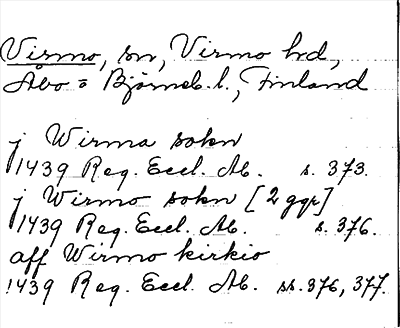 Virmo, sn, Virmo hd,
Åbo = Björneb. l., Finland
j Wirma sokn
1439 Reg. Eccl. Ab. s. 373.
j Wirmo sokn [2 ggr]
1439 Reg. Eccl. Ab. s. 376.
aff Wirmo kirkio
1439 Reg. Eccl. Ab. ss. 376, 377.